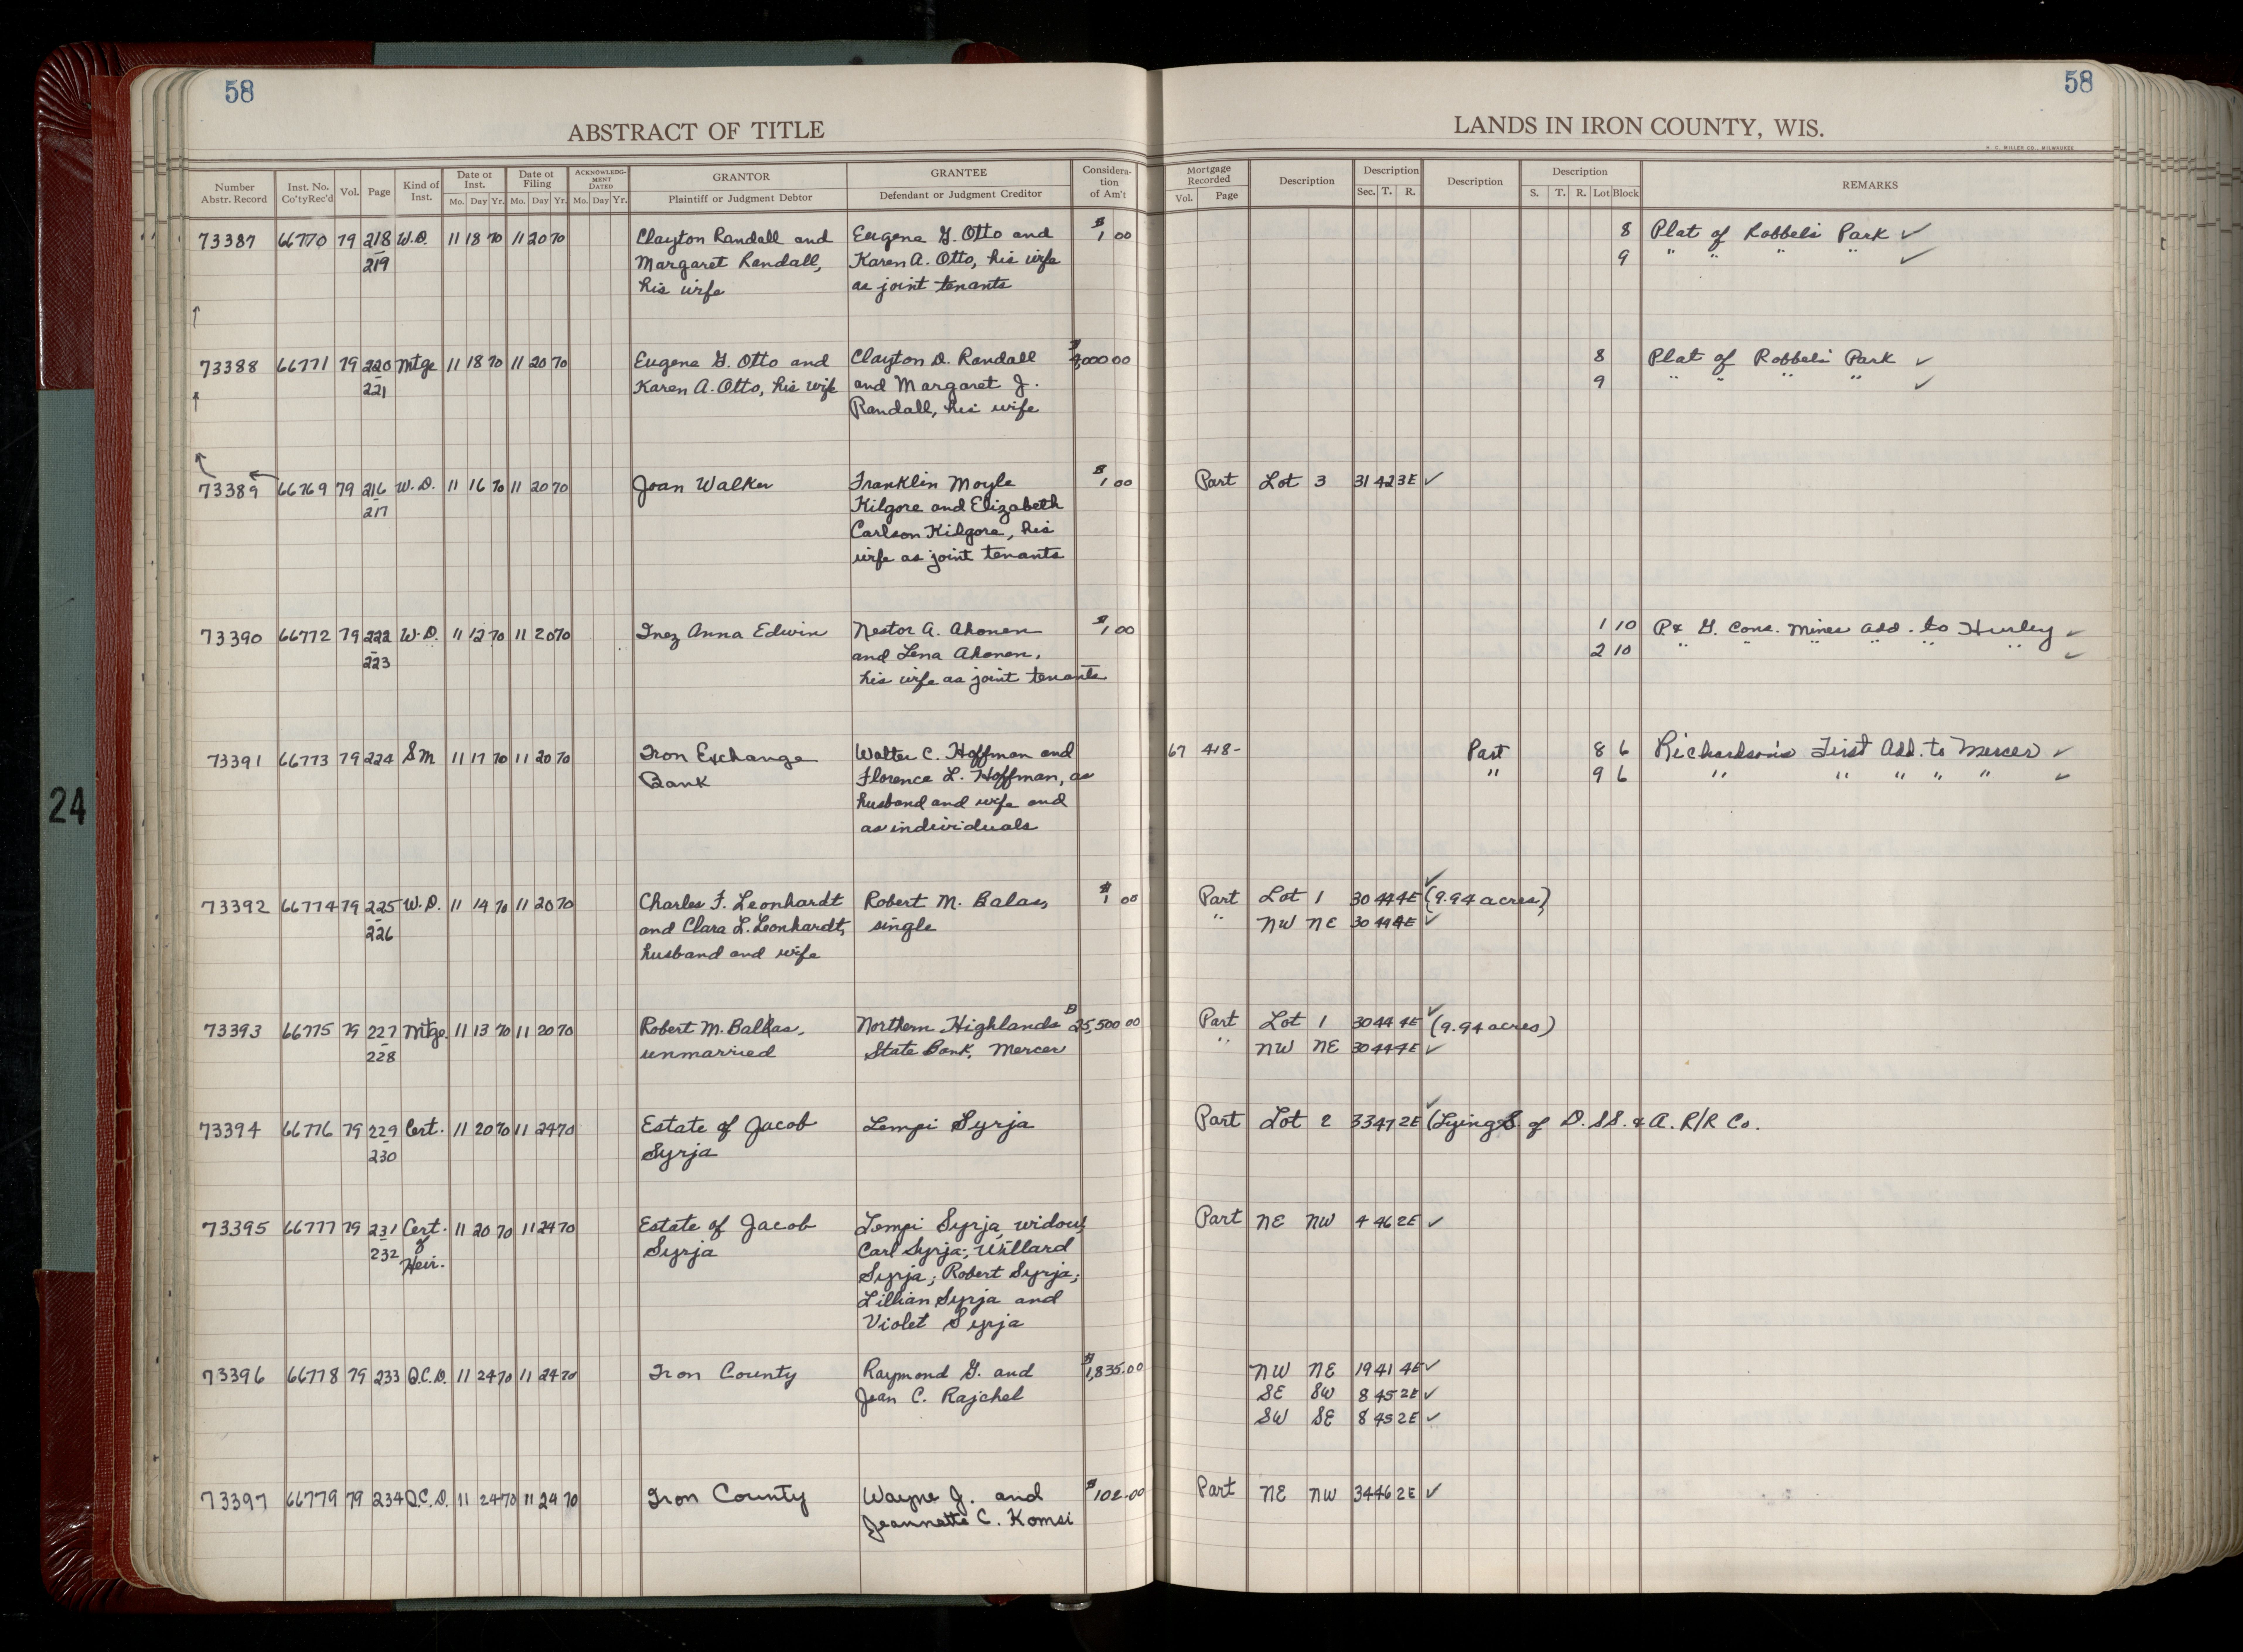 58
58
ABSTRACT OF TITLE
LANDS IN IRON COUNTY, WIS.
H. C. MILLER CO., MILWAUKEE
Number Abstr. Record
Inst. No. Co'ty Rec'd
Vol.
Page
Kind of Inst.
Date of Inst.
Mo. Day Yr.
Date of Filing
Mo. Day Yr.
ACKNOWLEDG-MENT DATED
Mo. Day Yr.
GRANTOR
Plaintiff or Judgment Debtor
GRANTEE
Defendant or Judgment Creditor
Considera-tion of Am't
Mortgage Recorded
Vol. Page
Description
Description
Sec. T. R.
Description
Description
S. T. R. Lot Block
REMARKS
73387 66770 79 218 W.D. 11 18 70 11 20 70 Clayton Randall and Eugene G. Otto and $1 00 8 Plat of Robbels Park ✓
219 Margaret Randall, Karen A. Otto, his wife 9 " " " " ✓
his wife as joint tenants
73388 66771 79 220 Mtge 11 18 70 11 20 70 Eugene G. Otto and Clayton D. Randall $ 000 00 8 Plat of Robbels Park ✓
221 Karen A. Otto, his wife and Margaret J. 9 " " " " ✓
Randall, his wife
73389 66769 79 216 W.D. 11 16 70 11 20 70 Joan Walker Franklin Moyle $1 00 Part Lot 3 31 42 3E ✓
217 Kilgore and Elizabeth
Carlson Kilgore, his
wife as joint tenants
73390 66772 79 222 W.D. 11 12 70 11 20 70 Inez Anna Edwin Nestor A. Ahonen $1 00 1 10 P & G. Cons. Mines Add. to Hurley ✓
223 and Lena Ahonen, 2 10 " " " " " " ✓
his wife as joint tenants
73391 66773 79 224 SM 11 17 70 11 20 70 Iron Exchange Walter C. Hoffman and 67 418- Part 8 6 Richardson's First Add. to Mercer ✓
Bank Florence L. Hoffman, as " 9 6 " " " " " ✓
husband and wife and
as individuals
73392 66774 79 225 W.D. 11 14 70 11 20 70 Charles F. Leonhardt Robert M. Balas, $1 00 Part Lot 1 30 44 4E ✓ (9.94 acres)
226 and Clara L. Leonhardt, single " NW NE 30 44 4E ✓
husband and wife
73393 66775 79 227 Mtge. 11 13 70 11 20 70 Robert M. Balkas, Northern Highlands $25,500 00 Part Lot 1 30 44 4E ✓ (9.94 acres)
228 unmarried State Bank, Mercer " NW NE 30 44 4E ✓
73394 66776 79 229 Cert. 11 20 70 11 24 70 Estate of Jacob Lempi Syrja Part Lot 2 33 47 2E ✓ (Lying S. of D. SS. & A. R/R Co.
230 Syrja
73395 66777 79 231 Cert. 11 20 70 11 24 70 Estate of Jacob Lempi Syrja, widow; Part NE NW 4 46 2E ✓
232 of Syrja Carl Syrja; Willard
Heir. Syrja; Robert Syrja;
Lillian Syrja and
Violet Syrja
73396 66778 79 233 Q.C.D. 11 24 70 11 24 70 Iron County Raymond G. and $1,835.00 NW NE 19 41 4E ✓
Jean C. Rajchel SE SW 8 45 2E ✓
SW SE 8 45 2E ✓
73397 66779 79 234 Q.C.D. 11 24 70 11 24 70 Iron County Wayne J. and $102.00 Part NE NW 34 46 2E ✓
Jeannette C. Komsi
24